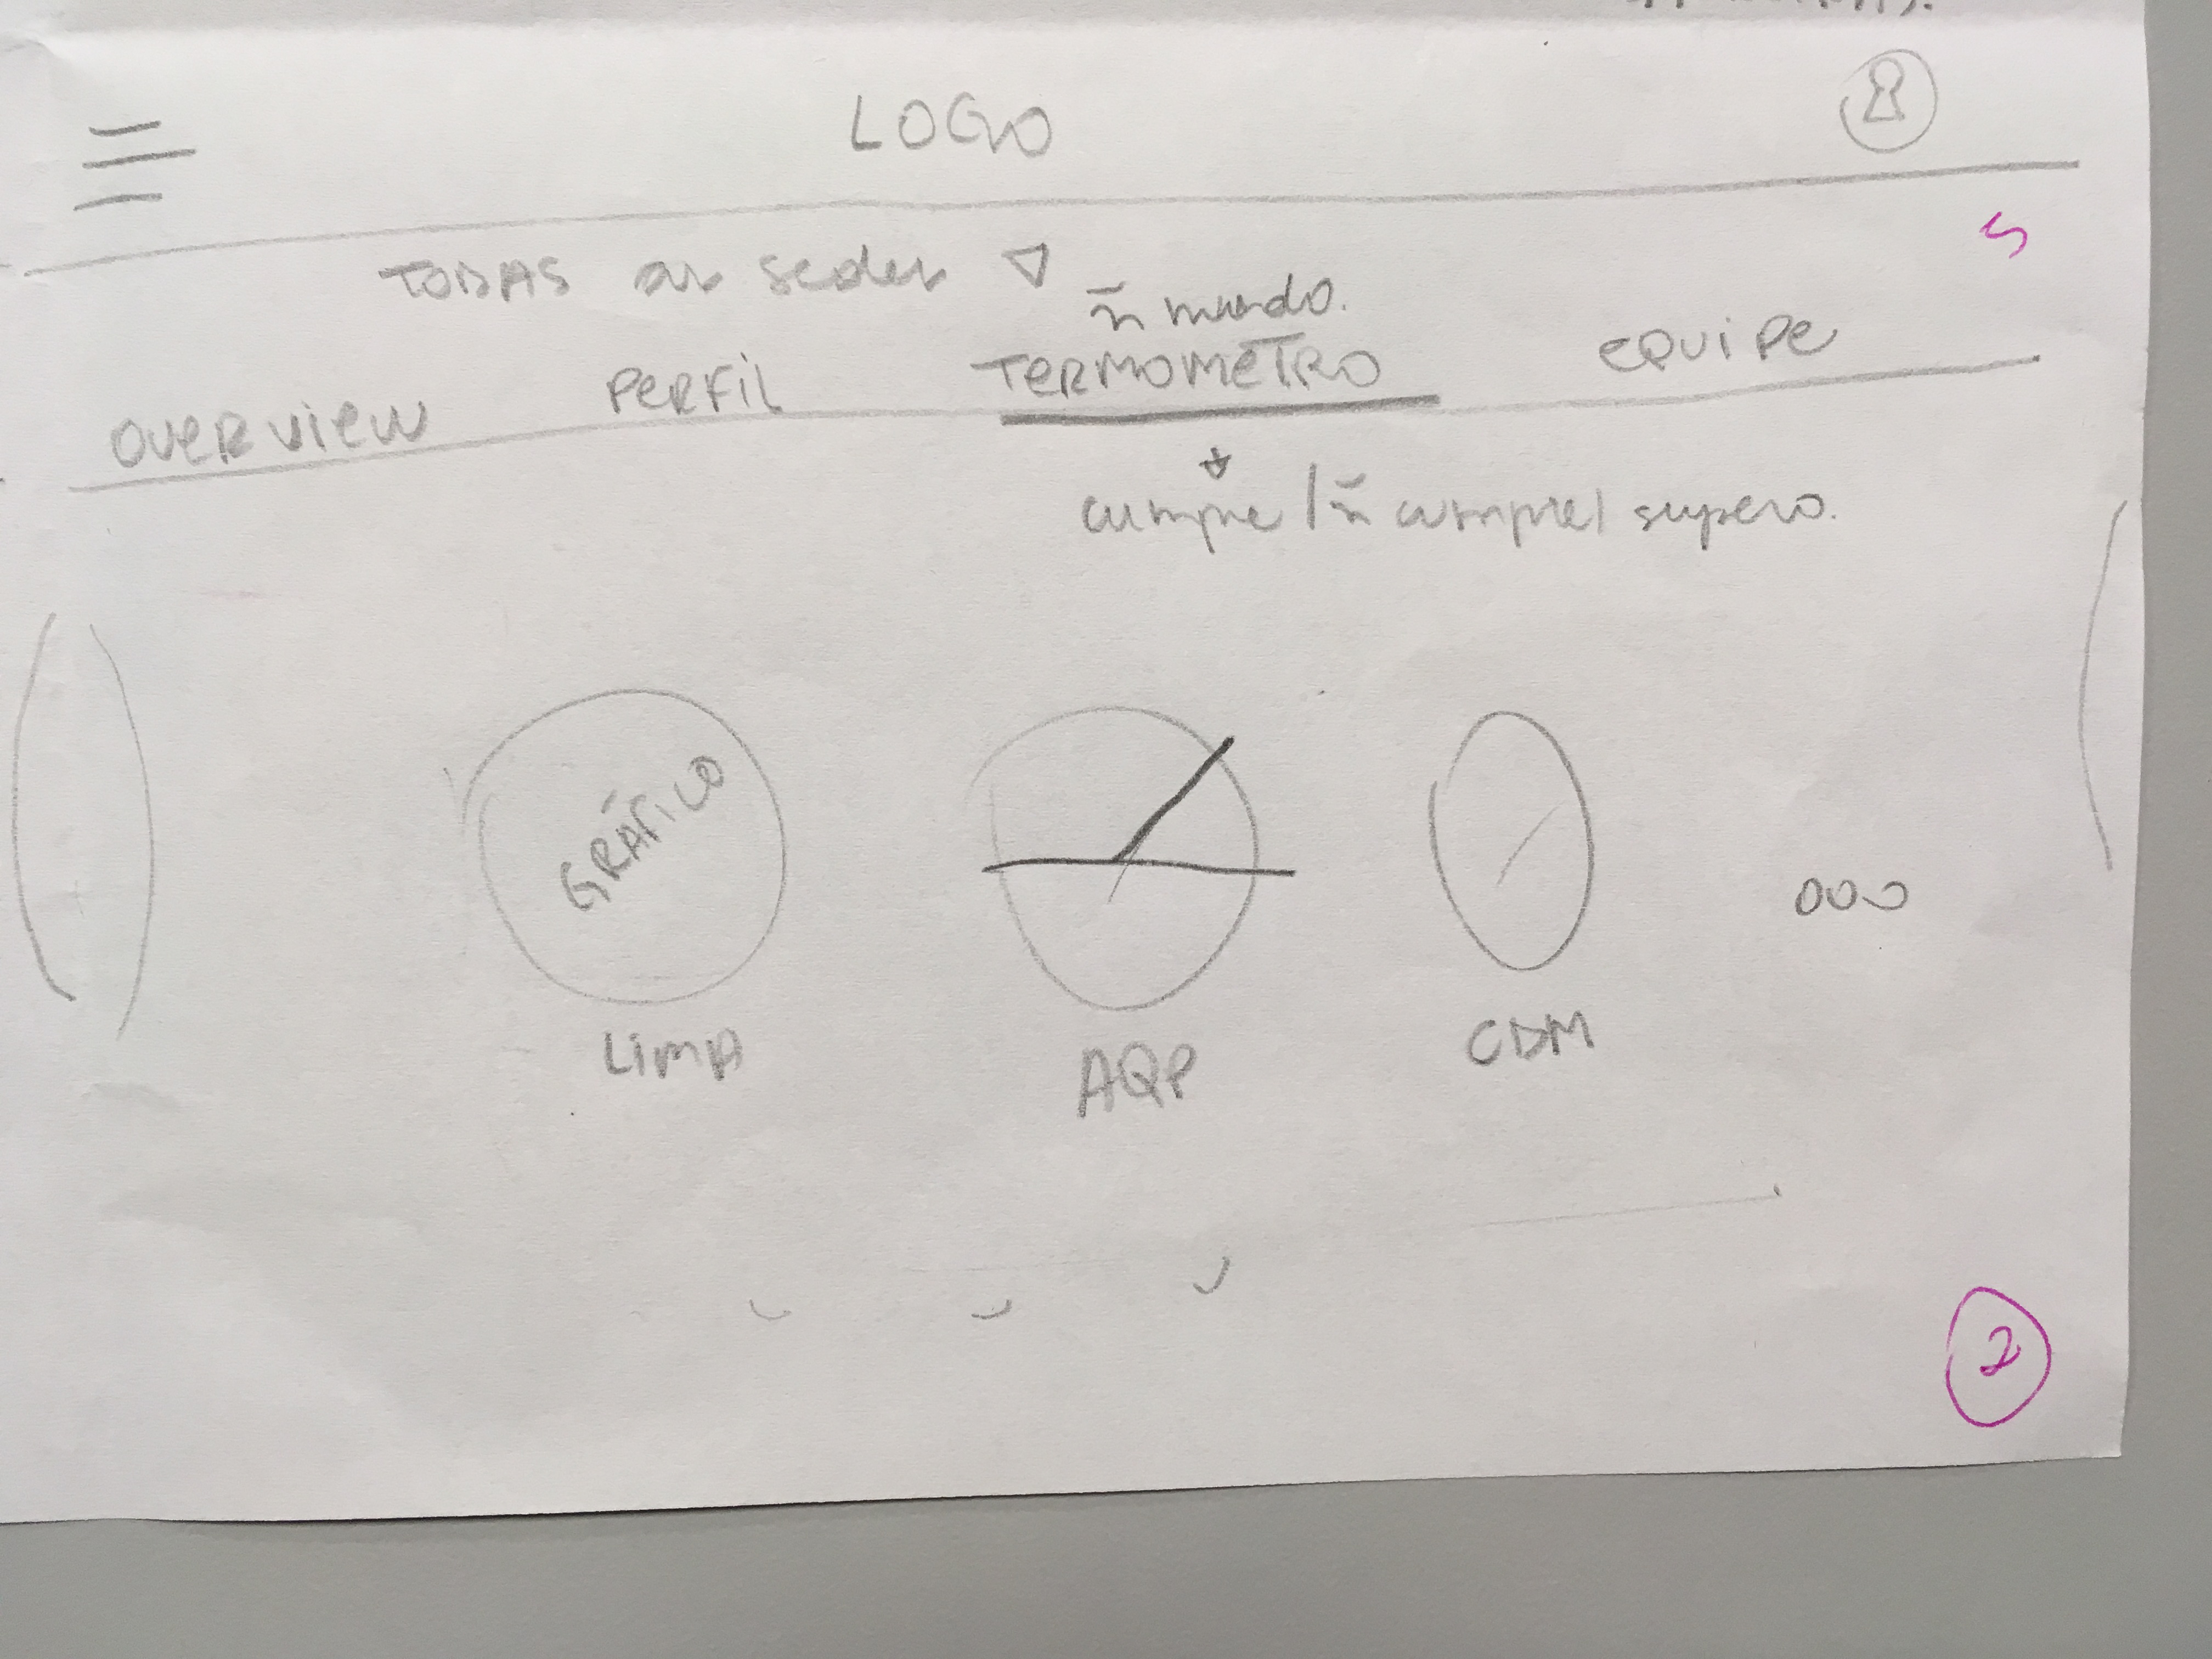 LOGO
TODAS as sedes
ñ mundo.
OVERVIEW PERFIL TERMOMETRO EQUIPE
cumple / ñ cumple / supero.
GRÁFICO
LIMA
AQP
CDM
ooo
2